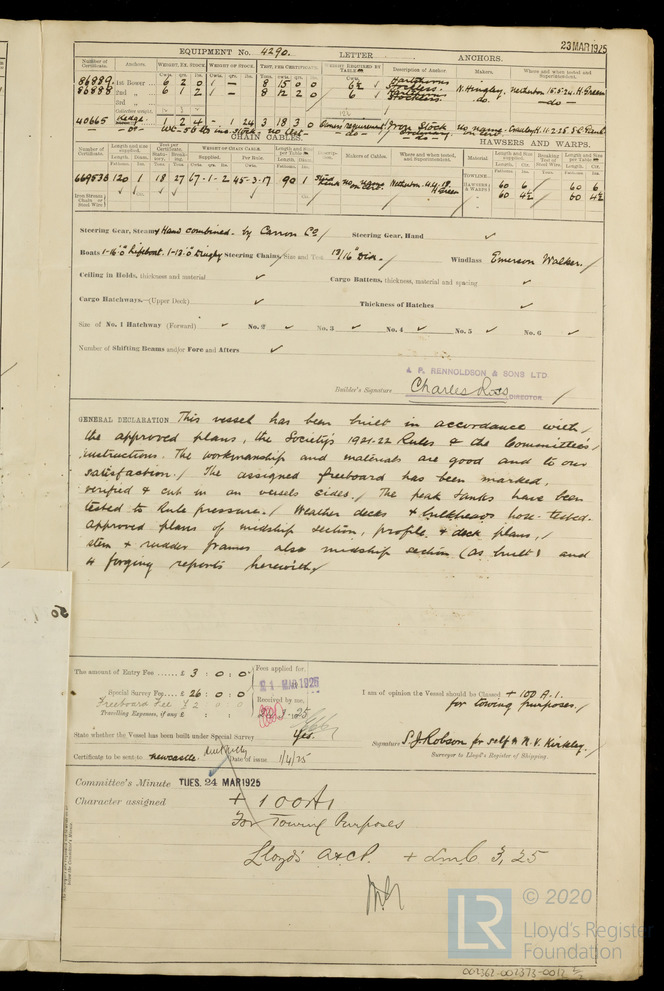 EQUIPMENT No. 4290. LETTER ANCHORS.
23 MAR 1925
Number of Certificate. Anchors. WEIGHT, EX. STOCK WEIGHT OF STOCK. TEST, PER CERTIFICATE. WEIGHT REQUIRED BY TABLE Description of Anchor Makers. Where and when tested and Superintendent.
86889 1st Bower 6 2 0 1 - 8 15 0 0 6½ Stockless. N. Hingley. Netherton 15.5.24. H. Green
86888 2nd 6 1 2 1 - 8 12 2 0 6 Stockless. do. do
3rd
40665 Kedge 1 2 4 - 1 24 3 18 3 0 Owners requirement Iron Stock no name on cert.
CHAIN CABLES. HAWSERS AND WARPS.
Number of Certificate. Length and size supplied. Test per Certificate. WEIGHT OF CHAIN CABLE. Length and Size per Table Makers of Cables. Where and when tested, and Superintendent. Material Length and Size supplied. Breaking Test of Steel Wire. Length and Size per Table
669838 120 1 18 27 67-1-2 45-3-17 90 1 Stud Link no name on cert. Netherton H. Green
TOWLINE
HAWSERS & WARPS 60 6 60 6
60 4½ 60 4½
Iron Stream Chain or Steel Wire
Steering Gear, Steam Hand combined - by Carron Co Steering Gear, Hand ✓
Boats 1-16'0" Lifeboat. 1-13'0" Dinghy Steering Chains, Size and Test 13/16" Dia. Windlass Emerson Walker.
Ceiling in Holds, thickness and material ✓ Cargo Battens, thickness, material and spacing ✓
Cargo Hatchways.—(Upper Deck) ✓ Thickness of Hatches ✓
Size of No. 1 Hatchway (Forward) ✓ No. 2 ✓ No. 3 ✓ No. 4 ✓ No. 5 ✓ No. 6 ✓
Number of Shifting Beams and/or Fore and Afters ✓
RENNOLDSON & SONS LTD
Builder's Signature Charles Ross DIRECTOR
GENERAL DECLARATION This vessel has been built in accordance with
the approved plans, the Society's 1921-22 Rules & the Committee's
instructions. The workmanship and materials are good and to our
satisfaction. The assigned freeboard has been marked,
verified & cut in on vessels sides. The peak tanks have been
tested to Rule pressure. Weather decks & bulkheads hose-tested.
Approved plans of midship section, profile & deck plans,
stem & rudder frames also midship section (as built) and
4 forging reports herewith
50
The amount of Entry Fee ...... £ 3 : 0 : 0
Fees applied for,
21 MAR 1925
Special Survey Fee .... £ 26 : 0 : 0
Freeboard Fee £ 2 0 0
Received by me,
Travelling Expenses, if any £ : :
I am of opinion the Vessel should be Classed + 100 A.1.
for towing purposes.
State whether the Vessel has been built under Special Survey Yes.
Signature S. J. Robson for self & N. V. Kirkley.
Surveyor to Lloyd's Register of Shipping.
Certificate to be sent to newcastle Date of issue 1/4/25
Committee's Minute TUES. 24 MAR 1925
Character assigned + 100A1
For Towing Purposes
Lloyd's A&CP. + LMC 3,25
© 2020
LR
Lloyd's Register
Foundation
002362-002373-0012 2/2